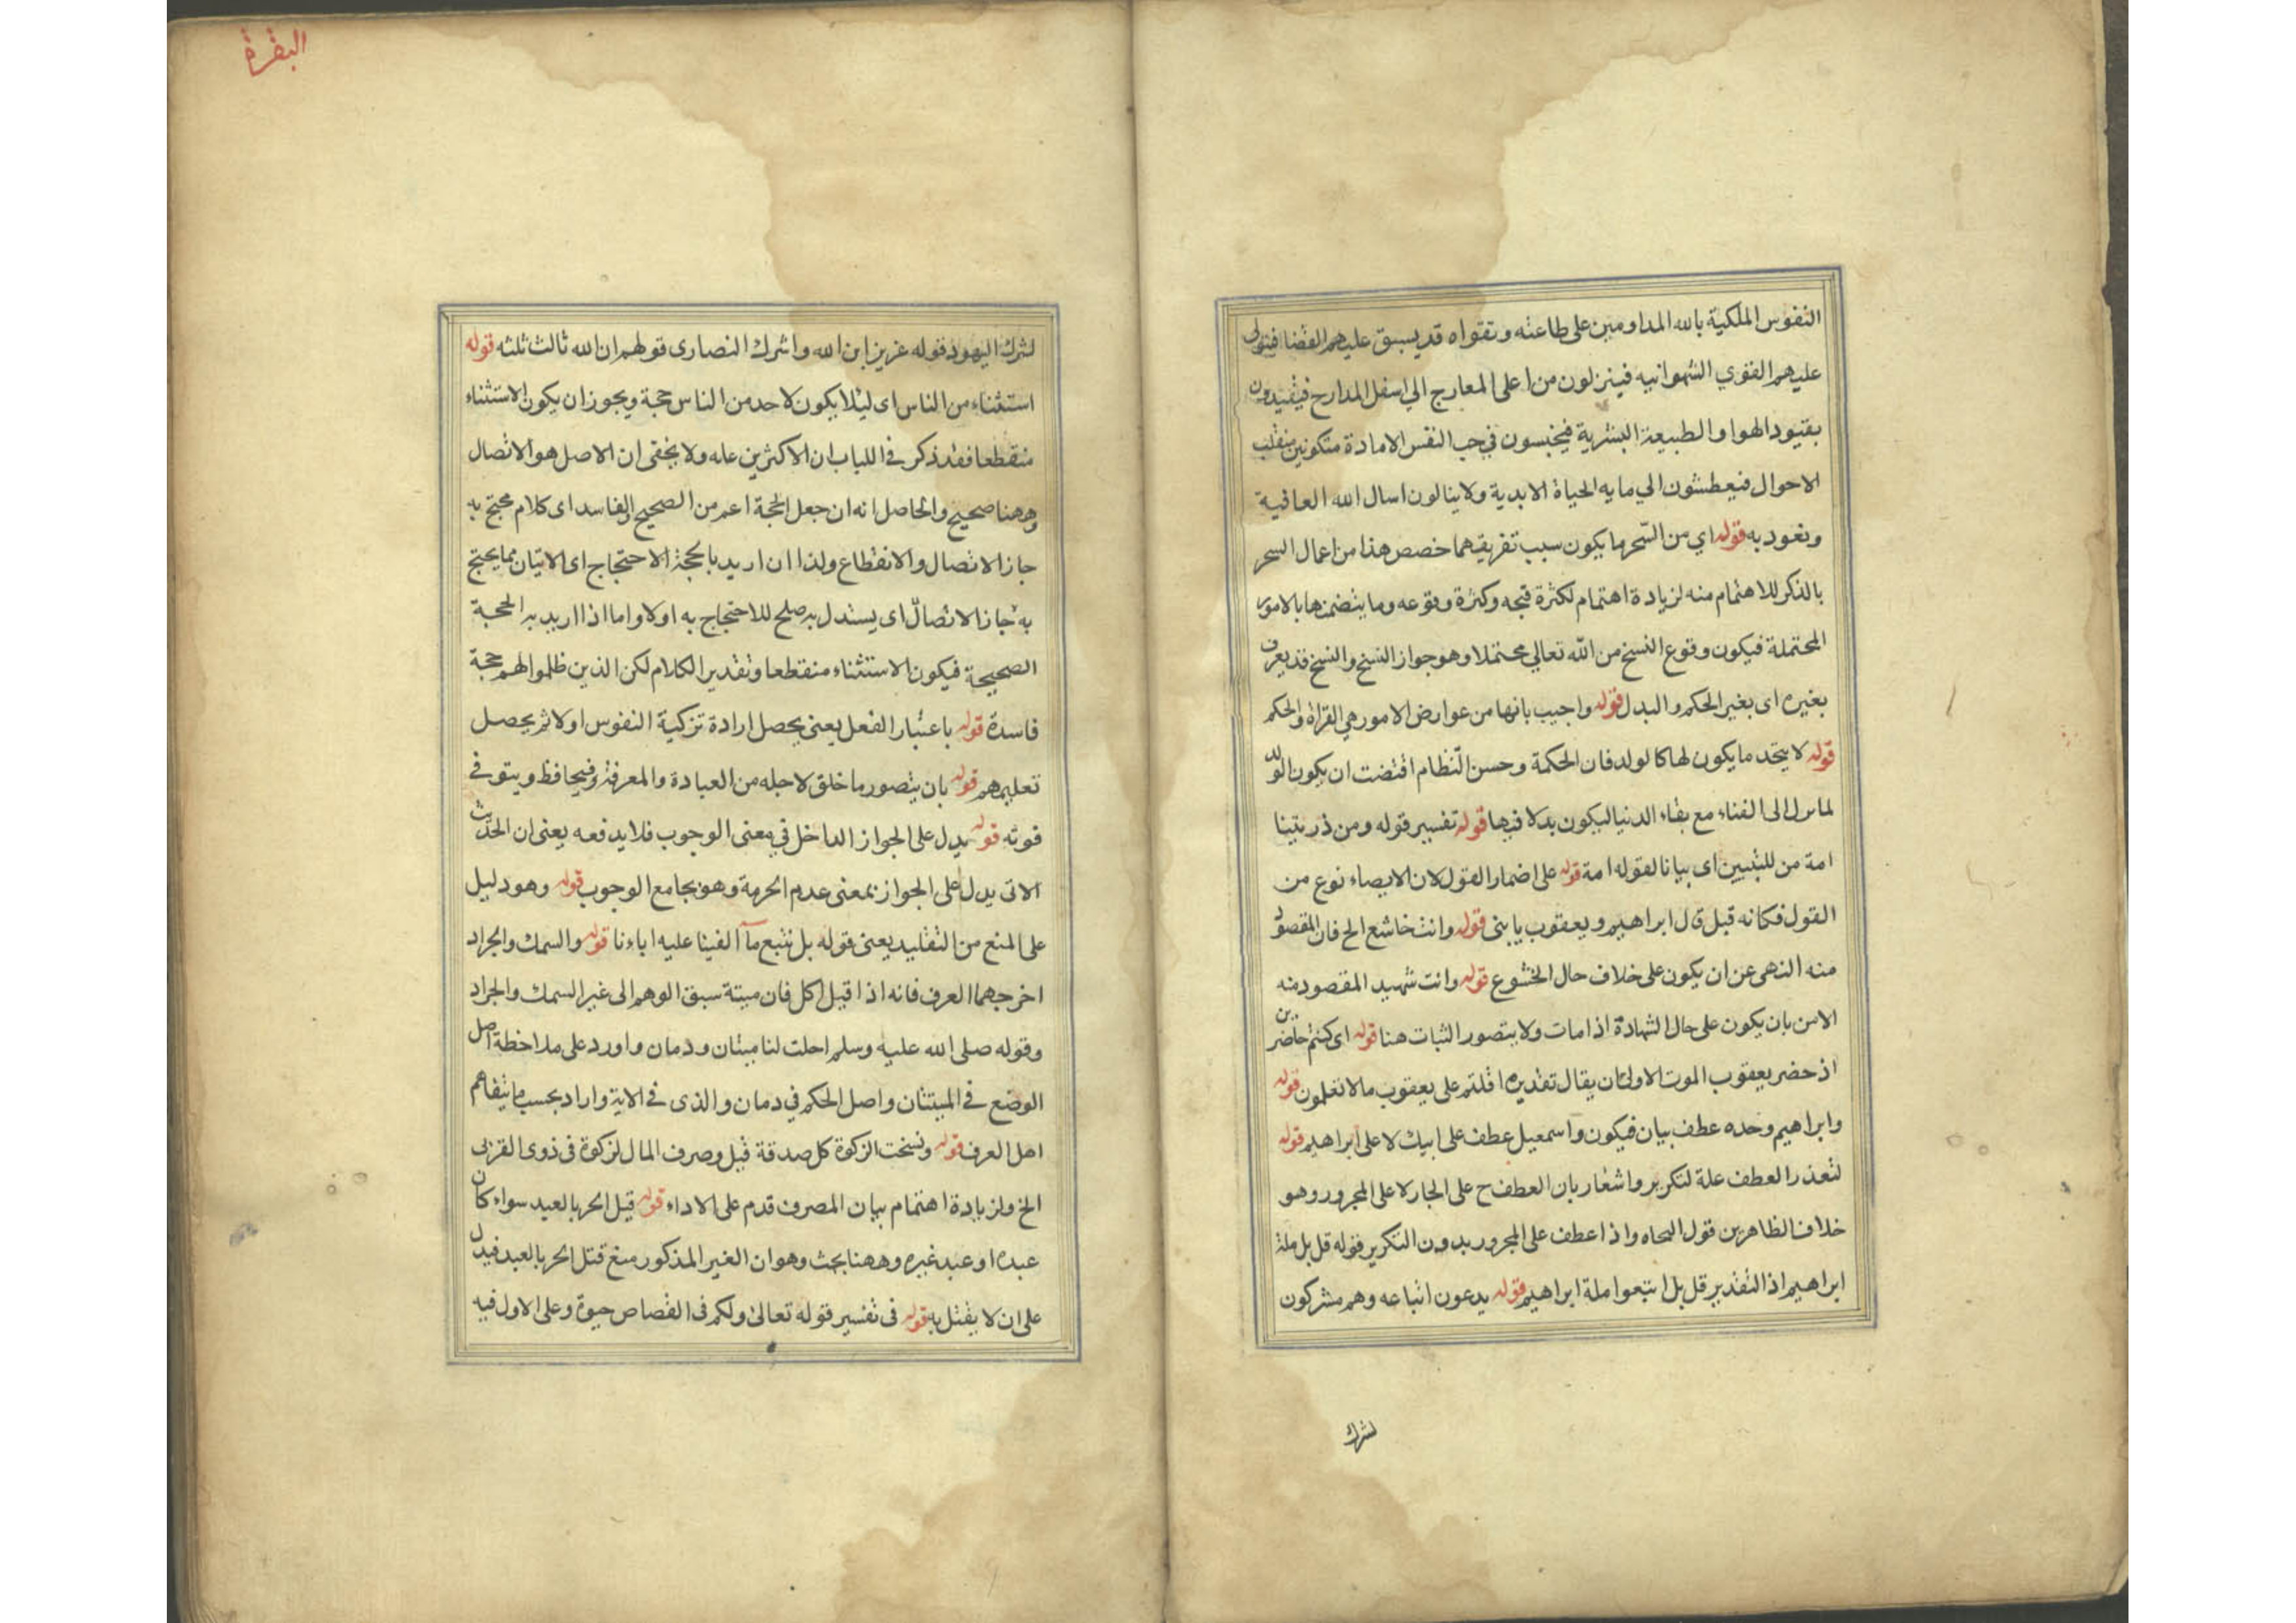 النفوس الملكية بالله المداومين على طاعته وتقواه قد يسبق عليهم القضا فيتولى
عليهم القوي الشهوانيه فينزلون من اعلى المعارج الي اسفل المدارح فيقيدون
بقيود الهوا والطبيعة البشرية فيحبسون في جب النفس الامادة متكونين منقلب
الاحوال فيعطشون الي مايه الحياة الابدية ولا ينالون اسال الله العافية
ونعود به قوله اي من السّحر ما يكون سبب تفريقهما خصص هذا من اعمال السحر
بالذكر للاهتمام منه لزيادة اهتمام لكثرة قبحه وكثرة وقوعه وما يتضمنها بالامور
المحتملة فيكون وقوع النسخ من اللّه تعالي محتملا وهو جواز النسخ والنسخ قد يعرف
بغيره اى بغير الحكم والبدل قوله واجيب بانها من عوارض الامور هي القراة والحكم
قوله لا يتحد ما يكون لها كالولد فان الحكمة وحسن النّظام اقتضت ان يكون الولد
لما سرل الى الفناء مع بقاء الدنيا ليكون بدلا فيها قوله تفسير قوله ومن ذريتنا
امة من للتبيين اى بيانا لقوله امة قوله على اضمار القول لان الايصاء نوع من
القول فكانه قبل قال ابراهيم ويعقوب يا بنى قوله وانت خاشع الخ فان المقصود
منه النهى عن ان يكون على خلاف حال الخشوع قوله وانت شهيد المقصود منه
الامن بان يكون على حال الشهادة اذا مات ولا يتصور الثبات هنا قوله اى كنتم حاضرين
اذ حضر يعقوب الموت الاولى ان يقال تقديره اقلتم على يعقوب مالا تعلمون قوله
وابراهيم وحده عطف بيان فيكون واسمعيل عطف على ابيك لا على ابراهيم قوله
لتعذر العطف علة لتكرير واشعار بان العطف ح على الجار لا على المجرور وهو
خلاف الظاهر من قول النحاه واذا عطف على المجرور بدون التكرير قوله قل بل ملة
ابراهيم اذ التقدير قل بل اتبعوا ملة ابراهيم قوله يدعون اتباعه وهم مشركون
لشرك
البقرة
لشرك اليهود قوله عزيز ابن الله واشرك النصارى قولهم ان الله ثالث ثلثه قوله
استثناء من الناس اى ليلا يكون لاحد من الناس حجة ويجوز ان يكون الاستثناء
منقطعا فقد ذكر في اللباب ان الاكثرين عله ولا يخفى ان الاصل هو الاتصال
وههنا صحيح والحاصل انه ان جعل الحجة اعم من الصحيح والفاسد اى كلام محتج به
جاز الاتصال والانقطاع ولذا ان اريد بالحجة الاحتجاج اى الاتيان بما يحتج
به جاز الاتصال اى يستدل به صلح للاحتجاج به اولا واما اذا اريد به الحجة
الصحيحة فيكون الاستثناء منقطعا وتقدير الكلام لكن الذين ظلموا لهم حجة
فاسدة قوله باعتبار الفعل يعنى يحصل ارادة تزكية النفوس اولا ثم يحصل
تعليمهم قوله بان يتصور ما خلق لاجله من العبادة والمعرفة فيحافظ ويتوفى
فوته قوله يدل على الجواز الداخل في معنى الوجوب فلا يدفعه يعنى ان الحديث
الاتى يدل على الجواز بمعنى عدم الحرمة وهو يجامع الوجوب قوله وهو دليل
على المنع من التقليد يعنى قوله بل نتبع مآ الفينا عليه اباءنا قوله والسمك والجراد
اخرجهما العرف فانه اذا قيل اكل فان ميتة سبق الوهم الى غير السمك والجراد
وقوله صلى الله عليه وسلم احلت لنا ميتتان ودمان واورد على ملاحظة اصل
الوضع في الميتتان واصل الحكم في دمان والذى في الاية واراد بحسب ما يتفاهم
اهل العرف قوله ونسخت الزكوة كل صدقة قيل وصرف المال لزكوة فى ذوى القربى
الخ ولزيادة اهتمام ببيان المصرف قدم على الاداء قوله قيل الحر بالعبد سواء كان
عبده او عبد غيره وههنا بحث وهو ان الغير المذكور منع قتل الحر بالعبد فيدل
على ان لا يقتل به قوله فى تفسير قوله تعالى ولكم فى القصاص حيوة وعلى الاول فيه